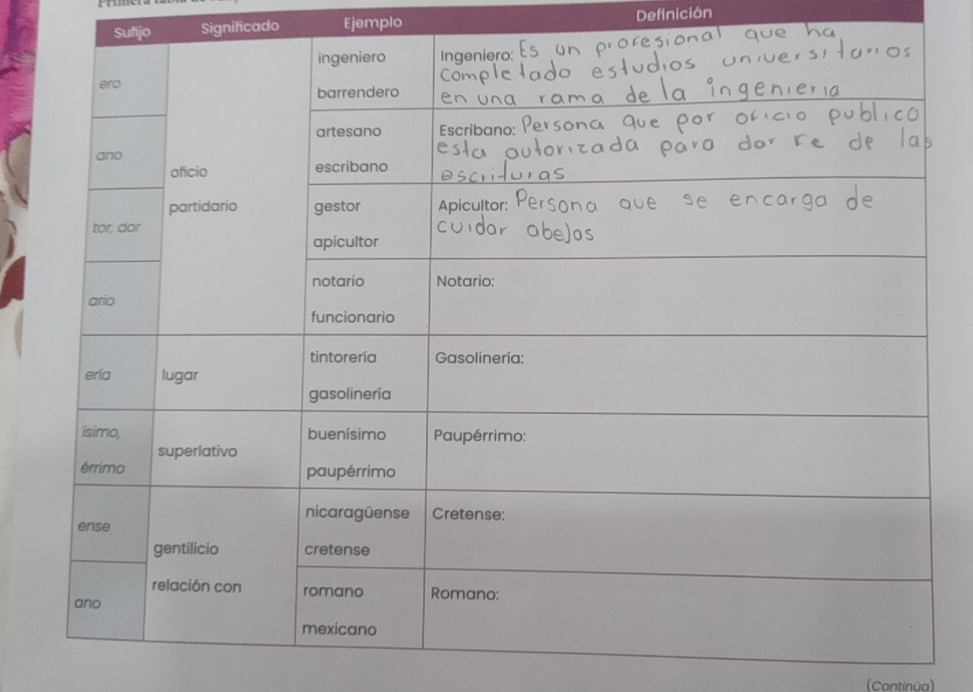 Sufijo Significado Ejemplo Definición
ero
oficio
partidario
ingeniero
barrendero
Ingeniero: Es un profesional que ha
completado estudios universitarios
en una rama de la ingenieria
ano
artesano
escribano
Escribano: Persona que por oficio publico
esta autorizada para dar fe de las
escrituras
tor, dor
gestor
apicultor
Apicultor: Persona que se encarga de
cuidar abejas
ario
notario
funcionario
Notario:
ería
lugar
tintorería
gasolinería
Gasolinería:
ísimo,
érrimo
superlativo
buenísimo
paupérrimo
Paupérrimo:
ense
gentilicio
relación con
nicaragüense
cretense
Cretense:
ano
romano
mexicano
Romano:
(Continúa)